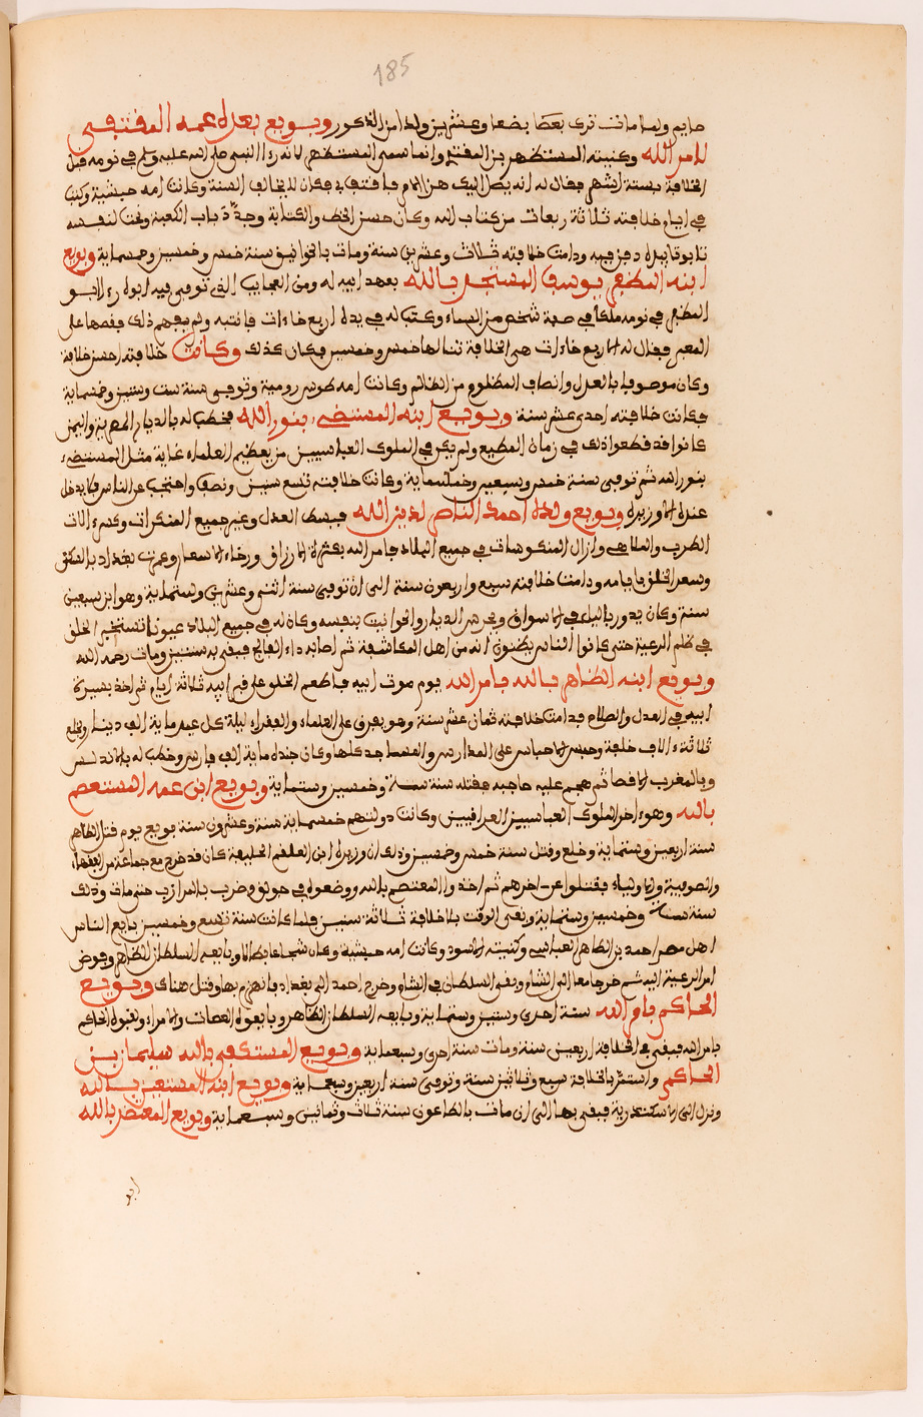 185
صايم ولما مات ترك بعضا بضعا وعشرين ولدا من الذكور وبويع بعده عمه المقتفي
لامر الله وكنيته المستظهر بن المقتدي وانما سمي المستظهر لانه رءا النبي صلى الله عليه وسلم في نومه قبل
الخلافة بستة اشهر فقال له انه يصل اليك هذا الامر فاقتف بي فكان لا يخالف السنة وكانت امه حبشية وكتب
في ايام خلافته ثلاثة ربعات من كتاب الله وكان حسن الخط والكتابة وجدد باب الكعبة ونحت لنفسه
تابوتا يدفن فيه ودامت خلافته ثلاث وعشرين سنة ومات بالخوانيق سنة خمس وخمسين وخمسماية وبويع
ابنه المظفر يوسف المستنجد بالله بعهد ابيه له ومن العجايب التي توفي فيه ابوه رءا ابو
المظفر في نومه ملكا في صفة شخص من السماء وكتب له في يده اربع خاءات فانتبه ولم يفهم ذلك فقصها على
المعبر فقال له الاربع خاءات هي الخلافة تنالها خمس وخمسين فكان كذلك وكانت خلافته احسن خلافة
وكان موصوفا بالعدل وانصاف المظلوم من الظالم وكانت امه طوس رومية وتوفي سنة ست وستين وخمسماية
فكانت خلافته احدى عشر سنة وبويع ابنه المستضيء بنور الله فخطب له بالديار المصرية واليمن
كانوا قد قطعوا ذلك في زمان المطيع ولم يكن في الملوك العباسيين من يعظم العلماء غاية مثل المستضيء
بنور الله ثم توفي سنة خمس وسبعين وخمسماية وكانت خلافته تسع سنين ونصف واحتجب عن الناس فلا يدخل
عنده الا وزيره وبويع ولده احمد الناصر لدين الله فبسط العدل وغير جميع المنكرات وكسر ءالات
الطرب والملاهي وازال المنكوسات في جميع البلاد فامر الله بكثرة الارزاق ورخاء الاسعار وعمرت بغداد بالسكنى
وسعد الخلق بايامه ودامت خلافته سبع واربعون سنة الى ان توفي سنة اثني وعشرين وستماية وهو ابن سبعين
سنة وكان يدور بالليل في الاسواق ويحرس الديار والحوانيت بنفسه وكان له في جميع البلاد عيونا تستخبر الخلق
في ظلم الرعية حتى كانوا الناس يظنون انه من اهل المكاشفة ثم اصابه داء الفالج فبقي به سنتين ومات رحمه الله
وبويع ابنه الظاهر بالله بامر الله يوم موت ابيه فاطعم الخلق على قبر ابيه ثلاثة ايام ثم اخذ بسيرة
ابيه في العدل والصلاح فدامت خلافته ثمان عشر سنة وهو يفرق على العلماء والفقراء ليلة كل عيد ماية الف دينار ويخلع
ثلاثة ءالاف خلعة وحبس الاحباس على المدارس والمساجد كلها وكان جنده ماية الف فارس وخطب له بالاندلس
وبالمغرب الاقصا ثم هجم عليه حاجبه فقتله سنة ستة وخمسين وستماية وبويع ابن عمه المستعصم
بالله وهو ءاخر الملوك العباسيين العراقيين وكانت دولتهم خمسماية سنة وعشرون سنة بويع يوم قتل الظاهر
سنة اربعين وستماية وخلع وقتل سنة خمس وخمسين وذلك ان وزيره ابن العلقم الخليعة كان قد خرج مع جماعة من الفقهاء
والصوفية والاولياء فقتلوا عن اخرهم ثم اخذوا المعتصم بالله ووضعوه في جولق وضرب بالمرازب حتى مات وذلك
سنة ستة وخمسين وستماية وبقى الوقت بلا خلافة ثلاثة سنين فلما كانت سنة تسع وخمسين بايع الناس
اهل مصر احمد بن الظاهر العباسي وكنيته الاسود وكانت امه حبشية وكان شجاعا بطلا وبايعه السلطان الظاهر وفوض
امر الرعية اليه ثم خرجا معا الى الشام وبقى السلطان في الشام وخرج احمد الى بغداد فانهزم بها وقتل هناك وبويع
الحاكم بامر الله سنة احدى وستين وستماية وبايعه السلطان الظاهر وبايعوه القضات والامراء ولقبوه الحاكم
بامر الله فبقي في الخلافة اربعين سنة ومات سنة احدى وسبعماية وبويع المستكفي بالله سليمان بن
الحاكم واستمر بالخلافة سبع وثلاثين سنة وتوفي سنة اربعين وسبعماية وبويع ابنه المستعين بالله
ونزل الى الاسكندرية فبقي بها الى ان مات بالطاعون سنة ثلاث وثمانين وسبعماية وبويع المعتضد بالله
ابو